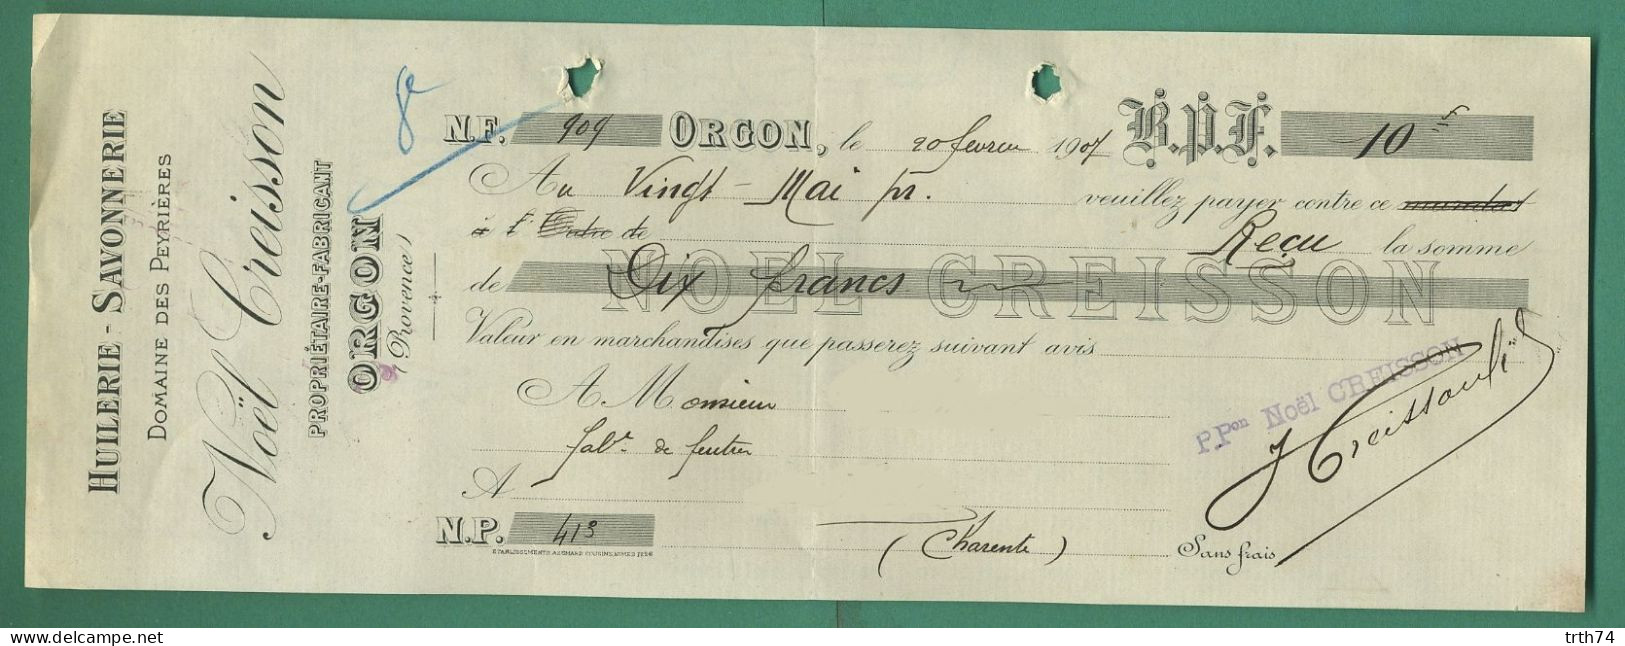 HUILERIE - SAVONNERIE
DOMAINE DES PEYRIÈRES
Noël Creisson
PROPRIÉTAIRE-FABRICANT
ORGON
(Provence)
N.F. 909 ORGON, le 20 fevrier 1907 B.P.F. 10
Au Vingt - Mai pr. veuillez payer contre ce mandat
à l'Ordre de Reçu la somme
de Dix francs
NOEL CREISSON
Valeur en marchandises que passerez suivant avis
A Monsieur
P.Pon Noël CREISSON
fabt de feutres
A
N.P. 413
(Charente)
Sans frais
trth74